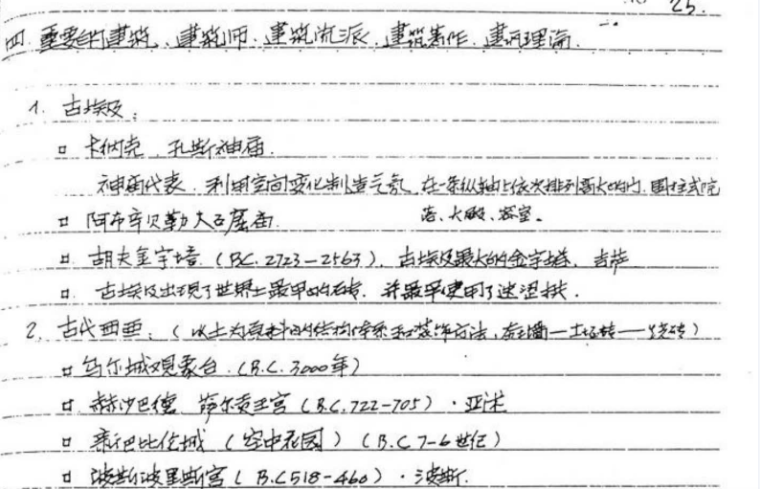 25.
四. 重要的建筑、建筑师、建筑流派、建筑著作、建筑理论.
1. 古埃及:
卡纳克, 孔斯神庙.
神庙代表. 利用空间变化制造气氛, 在一条纵轴上依次排列高大的门, 围柱式院
落、大殿、密室。
阿布辛贝勒大石窟庙.
胡夫金字塔. (B.C. 2723-2563), 古埃及最大的金字塔, 吉萨
古埃及出现了世界上最早的, 并最早使用了
2. 古代西亚: (以土为原料的结构体系和装饰方法, 土坯砖——烧砖)
乌尔城观象台. (B.C. 3000年)
赫沙巴德 萨尔贡王宫 (B.C. 722-705) · 亚述
新巴比伦城 (空中花园) (B.C 7-6世纪)
波斯波里斯宫 (B.C 518-460) · 波斯.